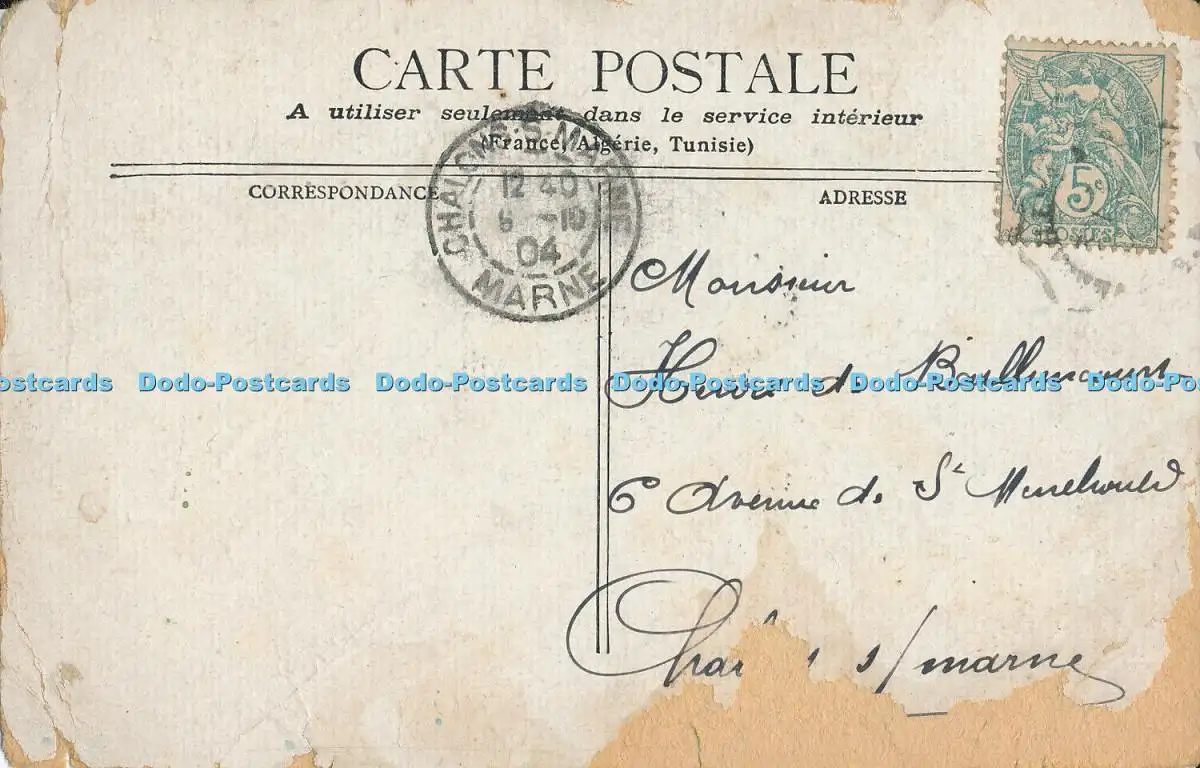 CARTE POSTALE
A utiliser seulement dans le service intérieur
(France, Algérie, Tunisie)
CORRESPONDANCE
ADRESSE
CHALONS-S-MARNE
12 40
6 -10
04
MARNE
5c
POSTES
Monsieur
Henri de Baillencourt
ostcards Dodo-Postcards Dodo-Postcards Dodo-Postcards Dodo-Postcards Dodo-Po
6 Avenue de St Menehould
s/marne